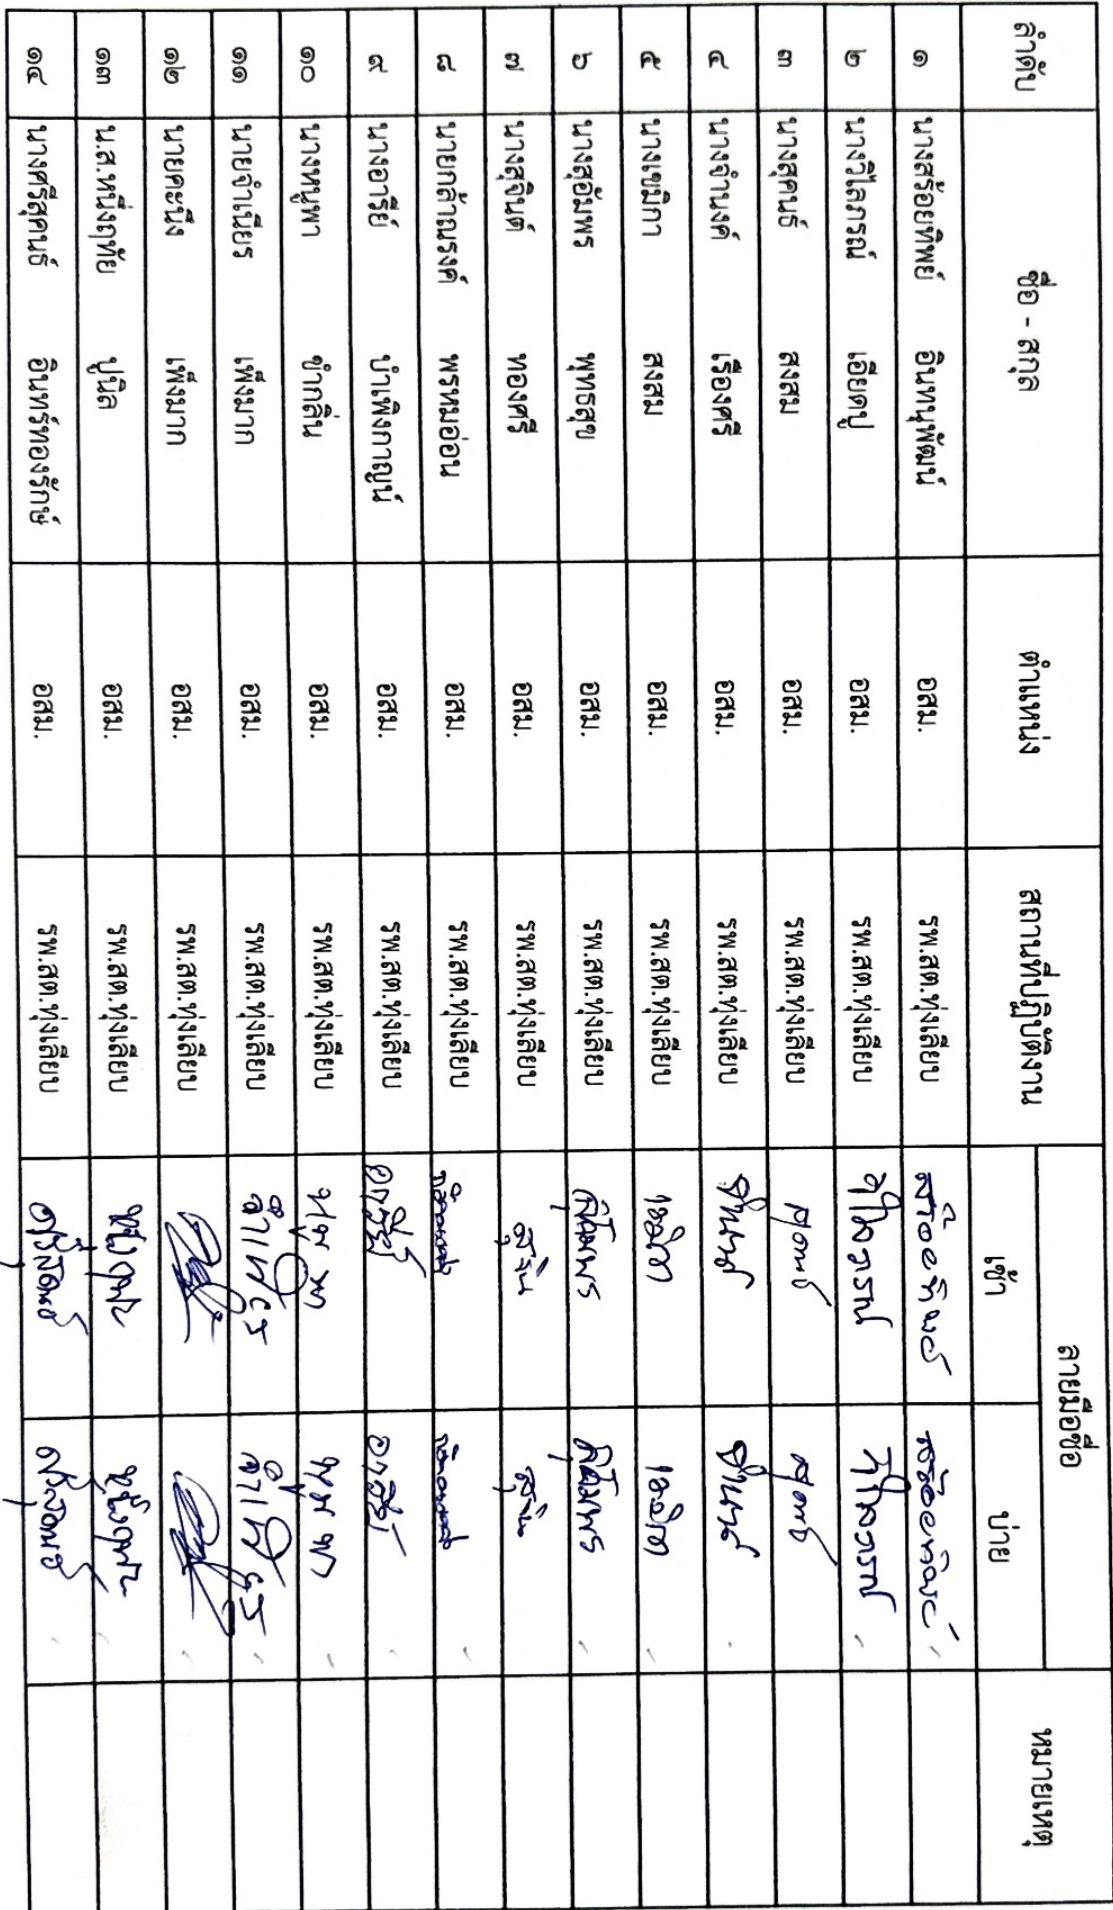 ลำดับ ชื่อ - สกุล ตำแหน่ง สถานที่ปฏิบัติงาน ลายมือชื่อ หมายเหตุ
เช้า บ่าย
๑ นางสร้อยทิพย์ อินทนุพัฒน์ อสม. รพ.สต.ทุ่งเลียบ สร้อยทิพย์ สร้อยทิพย์
๒ นางวิไลภรณ์ เอียดปู อสม. รพ.สต.ทุ่งเลียบ วิไลภรณ์ วิไลภรณ์
๓ นางสุคนธ์ สงสม อสม. รพ.สต.ทุ่งเลียบ สุคนธ์ สุคนธ์
๔ นางจำนงค์ เรืองศรี อสม. รพ.สต.ทุ่งเลียบ
๕ นางเขมิกา สงสม อสม. รพ.สต.ทุ่งเลียบ เขมิกา เขมิกา
๖ นางสุอัมพร พุทธสุข อสม. รพ.สต.ทุ่งเลียบ สุอัมพร สุอัมพร
๗ นางสุจินต์ ทองศรี อสม. รพ.สต.ทุ่งเลียบ
๘ นายกล้าณรงค์ พรหมอ่อน อสม. รพ.สต.ทุ่งเลียบ
๙ นางอารีย์ บำเพิงกาญน์ อสม. รพ.สต.ทุ่งเลียบ อารีย์ อารีย์
๑๐ นางหนูพา ขำกลิ่น อสม. รพ.สต.ทุ่งเลียบ หนูพา หนูพา
๑๑ นายจำเนียร เพ็งมาก อสม. รพ.สต.ทุ่งเลียบ จำเนียร จำเนียร
๑๒ นายคะนึง เพ็งมาก อสม. รพ.สต.ทุ่งเลียบ
๑๓ น.ส.หนึ่งฤทัย ปูนิล อสม. รพ.สต.ทุ่งเลียบ
๑๔ นางศรีสุคนธ์ อินทร์ทองรักษ์ อสม. รพ.สต.ทุ่งเลียบ ศรีสุคนธ์ ศรีสุคนธ์